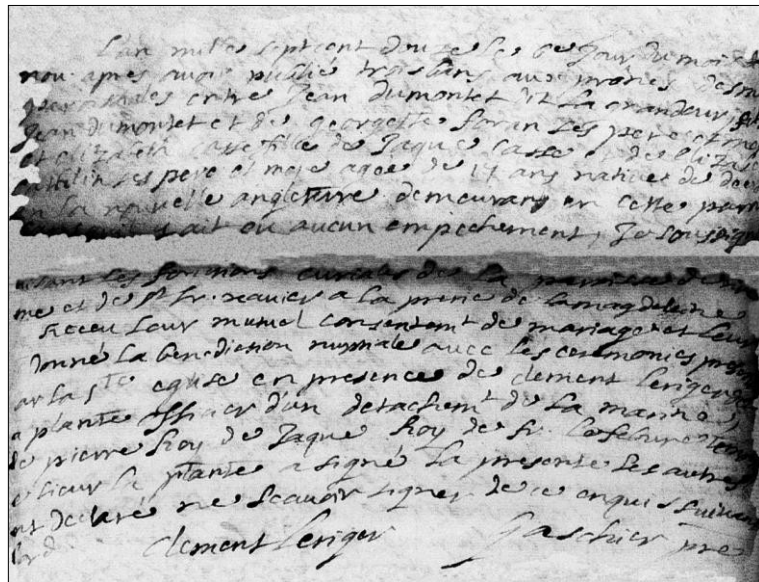 L'an mille sept cent douze le 6e jour du mois
nov. apres avoir publié trois bans aux prones des m
entre Jean dumontet dit la grandeur fil
Jean dumontet et de georgette foran Les pere et me
et elizabeth casse fille de Jaque casse et de Eliza
ses pere et mere agee de 17 ans natives de dee
en la nouvelle angleterre demeurans en cette par
ait eu aucun empechement, Je soussigne
les fonctions curiales de la parroisse de
me et de St fr. xavier a la prerie de la magdeleine
Receu Leur mutuel consentemt de mariage et Leur
Donné La benediction nuptiale avec les ceremonies
ar la Ste eglise en presence de clement Leriger de
a plante officier d'un detachemt de La marine,
de pierre Roy de Jaque Roy de fr. Lefebure
e sieur la plante a signé la presente les autres
nt declaré ne scavoir signer de ce enquis suivant
lord.
clement Leriger Gaschier pre